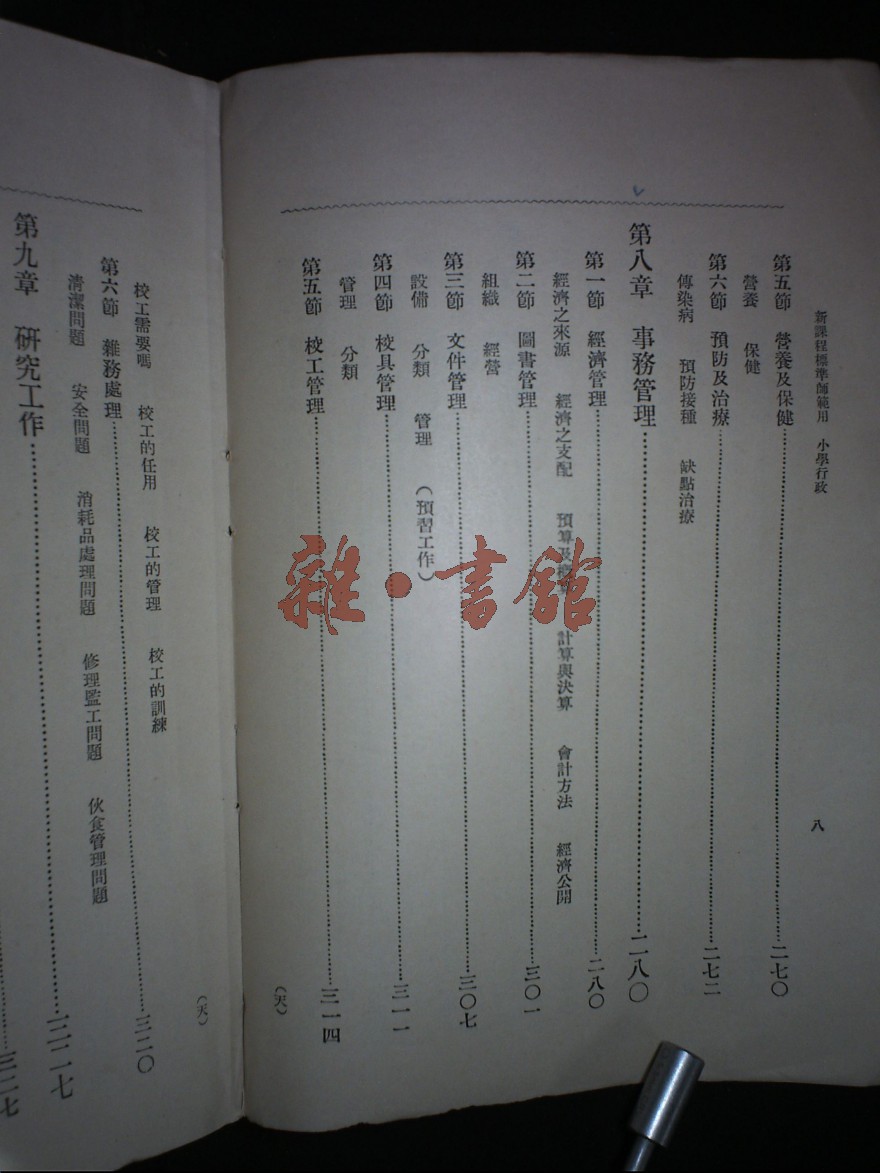 新課程標準師範用 小學行政
八
第五節 營養及保健 二七〇
營養 保健
第六節 預防及治療 二七二
傳染病 預防接種 缺點治療
第八章 事務管理 二八〇
第一節 經濟管理 二八〇
經濟之來源 經濟之支配 預算及 計算與決算 會計方法 經濟公開
第二節 圖書管理 三〇一
組織 經營
第三節 文件管理 三〇七
設備 分類 管理 (預習工作)
第四節 校具管理 三一一
管理 分類
第五節 校工管理 三一四
(天)
校工需要嗎 校工的任用 校工的管理 校工的訓練
第六節 雜務處理 三二〇
清潔問題 安全問題 消耗品處理問題 修理監工問題 伙食管理問題
第九章 研究工作 三二七
三二七
(天)
雜·書館